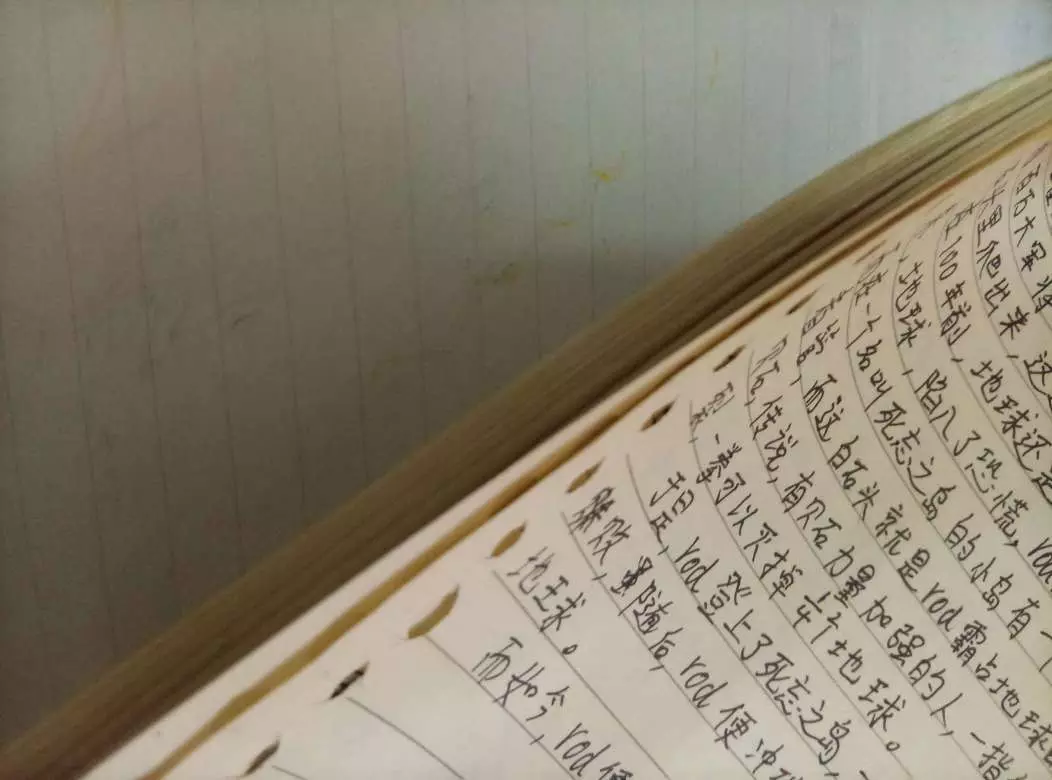 百万大军将
里爬出来，这
100年前，地球还是
地球，陷入了恐慌，rod
一个名叫死忘之岛的小岛有一
而这白石头就是rod霸占地球
传说，有贝石力量加强的人，一
一拳可以灭掉1/4个地球。
于是，rod登上了死忘之岛，
随后，rod便冲
地球。
而如今，rod便